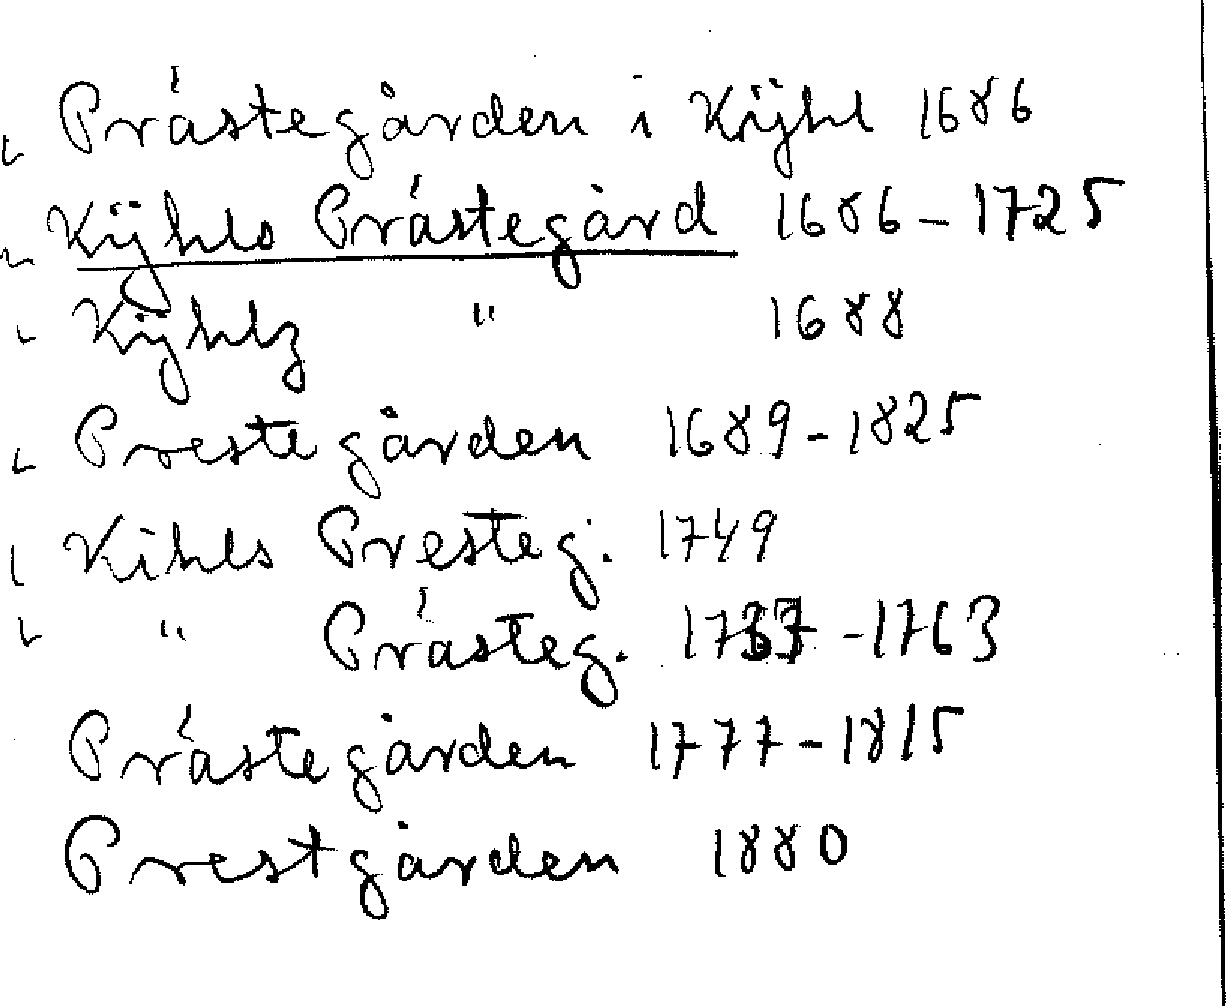 Prästegården i Kÿhl 1686
Kÿhls Prästegård 1686-1725
Kÿhlz " 1688
Prestegården 1689-1825
Kihls Presteg. 1749
" Prästeg. -1763
Prästegården 1777-1815
Prestgården 1880